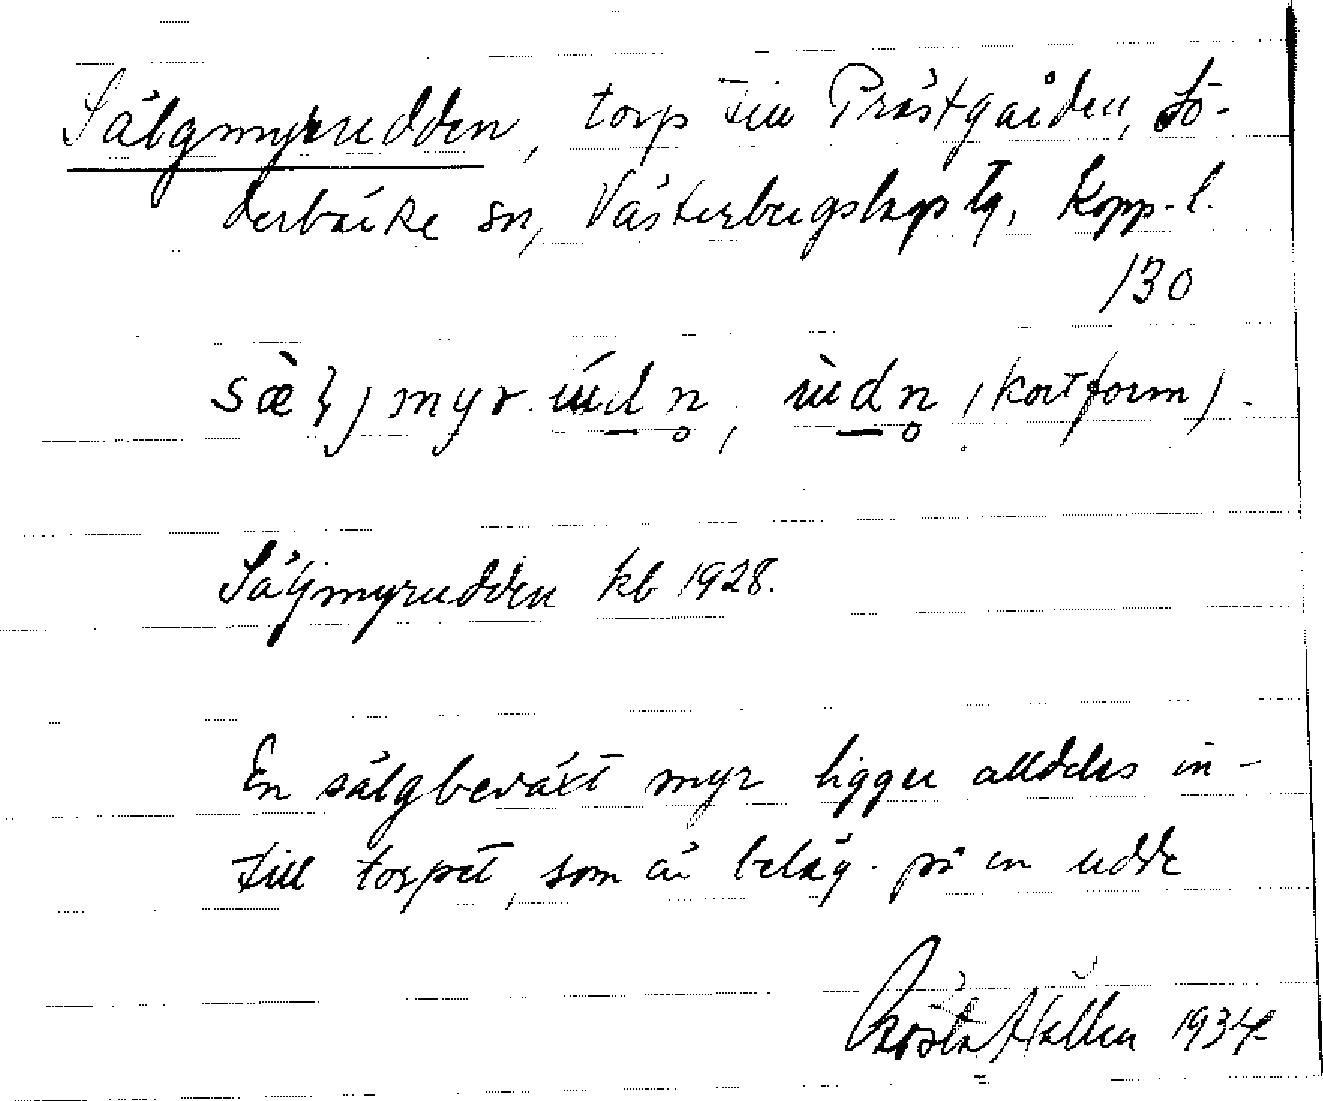 Sälgmyrudden, torp till Prästgården, Sö-
derbärke sn, Västerbergslags tg, Kopp. l.
130
Säljmyrudden kb 1928.
En sälgbeväxt myr ligger alldeles in-
till torpet, som är beläg. på en udde
Gösta Hallén 1934